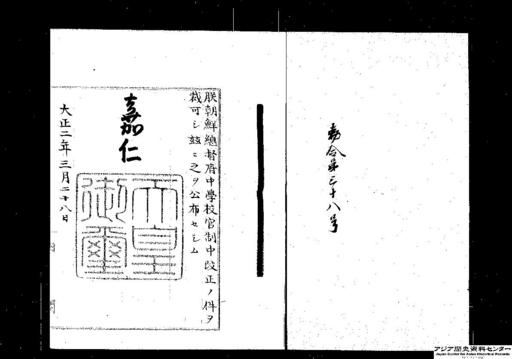 勅令第三十八号
朕朝鮮總督府中學校官制中改正ノ件ヲ
裁可シ茲ニ之ヲ公布セシム
嘉仁
天皇
御璽
大正二年三月二十八日
内閣
アジア歴史資料センター
Japan Center for Asian Historical Records